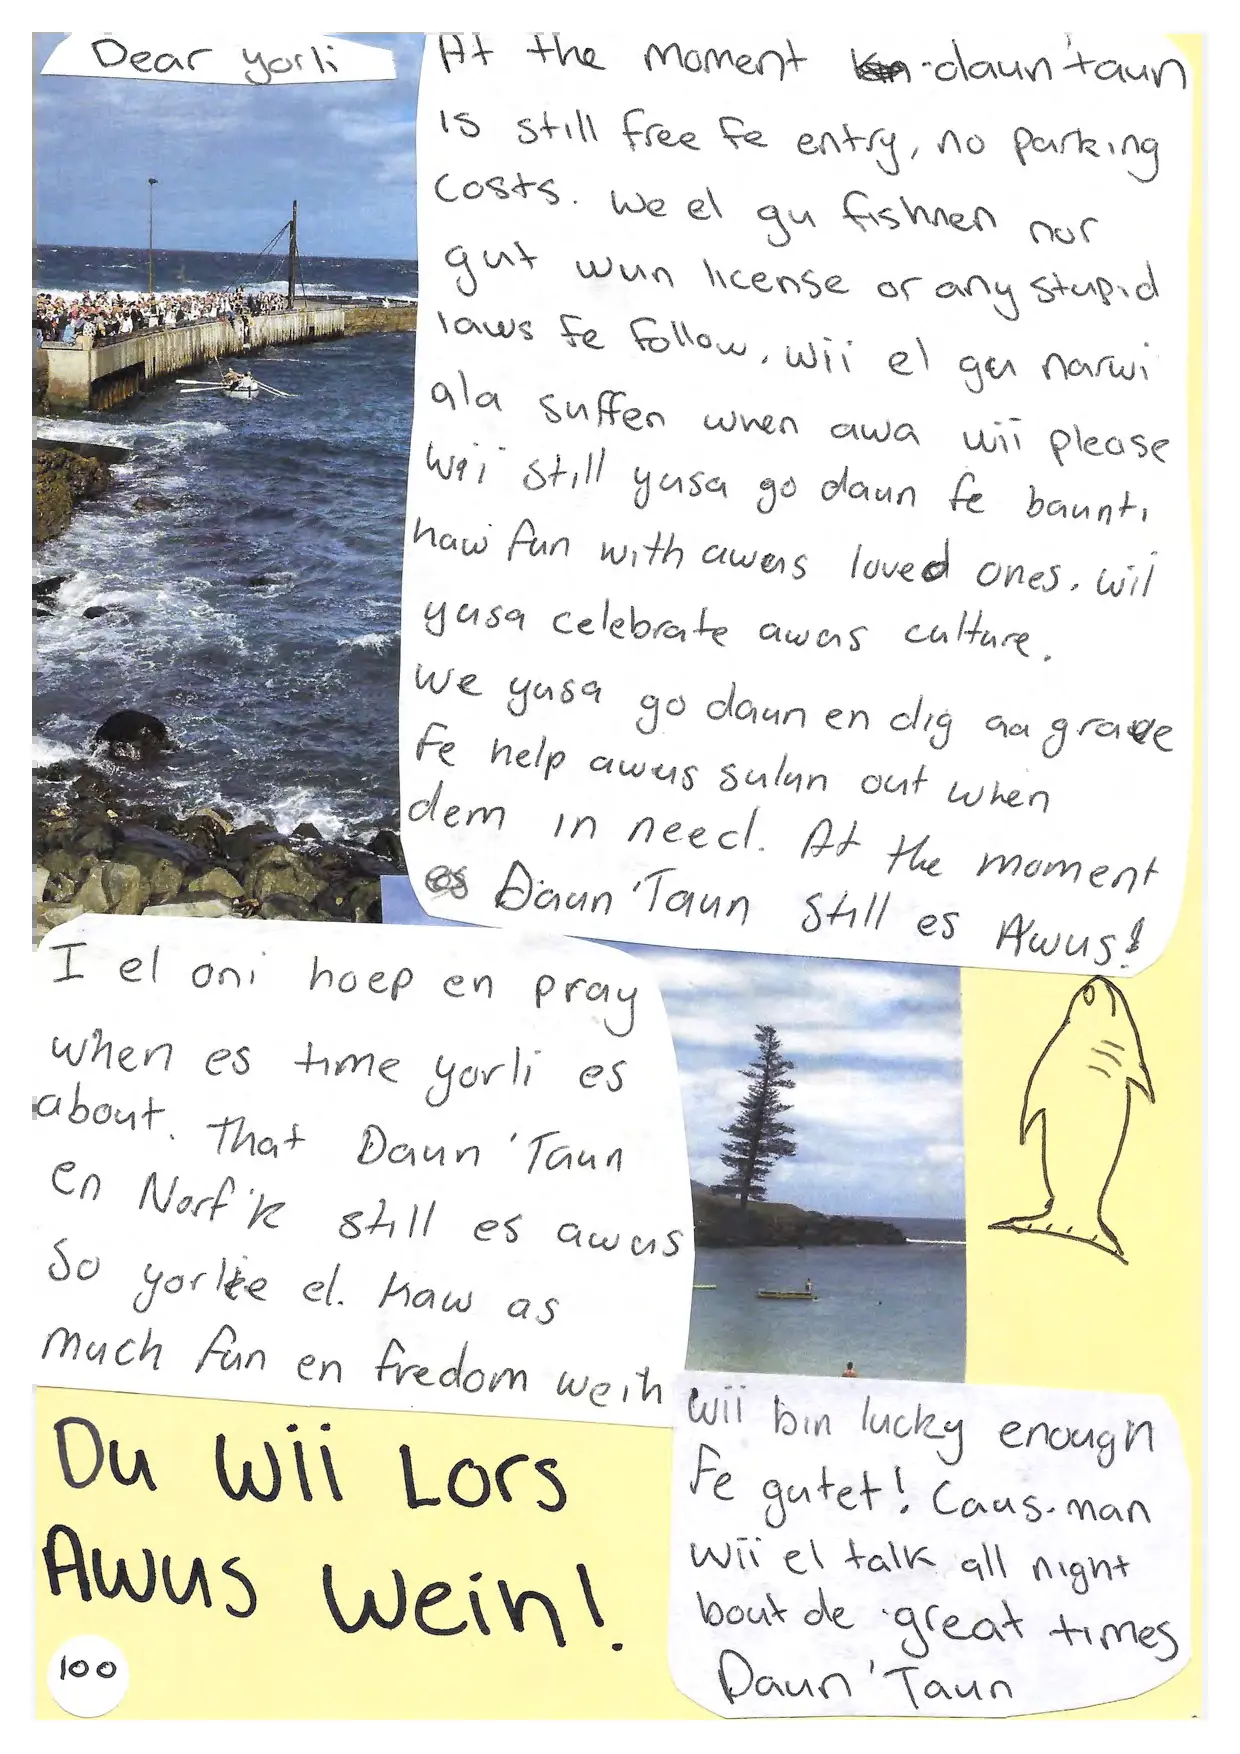 Dear yorli
At the moment daun'taun
is still free fe entry, no parking
costs. We el gu fishnen nor
gut wun license or any stupid
laws fe follow. Wii el gu narwi
ala suffen when awa wii please
Wii still yusa go daun fe baunti
haw fun with awas loved ones. Wii
yusa celebrate awas culture.
We yusa go daun en dig aa grave
fe help awus sulun out when
dem in need. At the moment
Daun 'Taun still es Awus!
I el oni hoep en pray
when es time yorli es
about. That Daun 'Taun
en Norf'k still es awus
So yorlee el. Haw as
much fun en fredom weih
wii bin lucky enough
fe gutet! Caus. man
wii el talk all night
bout de great times
Daun 'Taun
Du Wii Lors
Awus Wein!
100